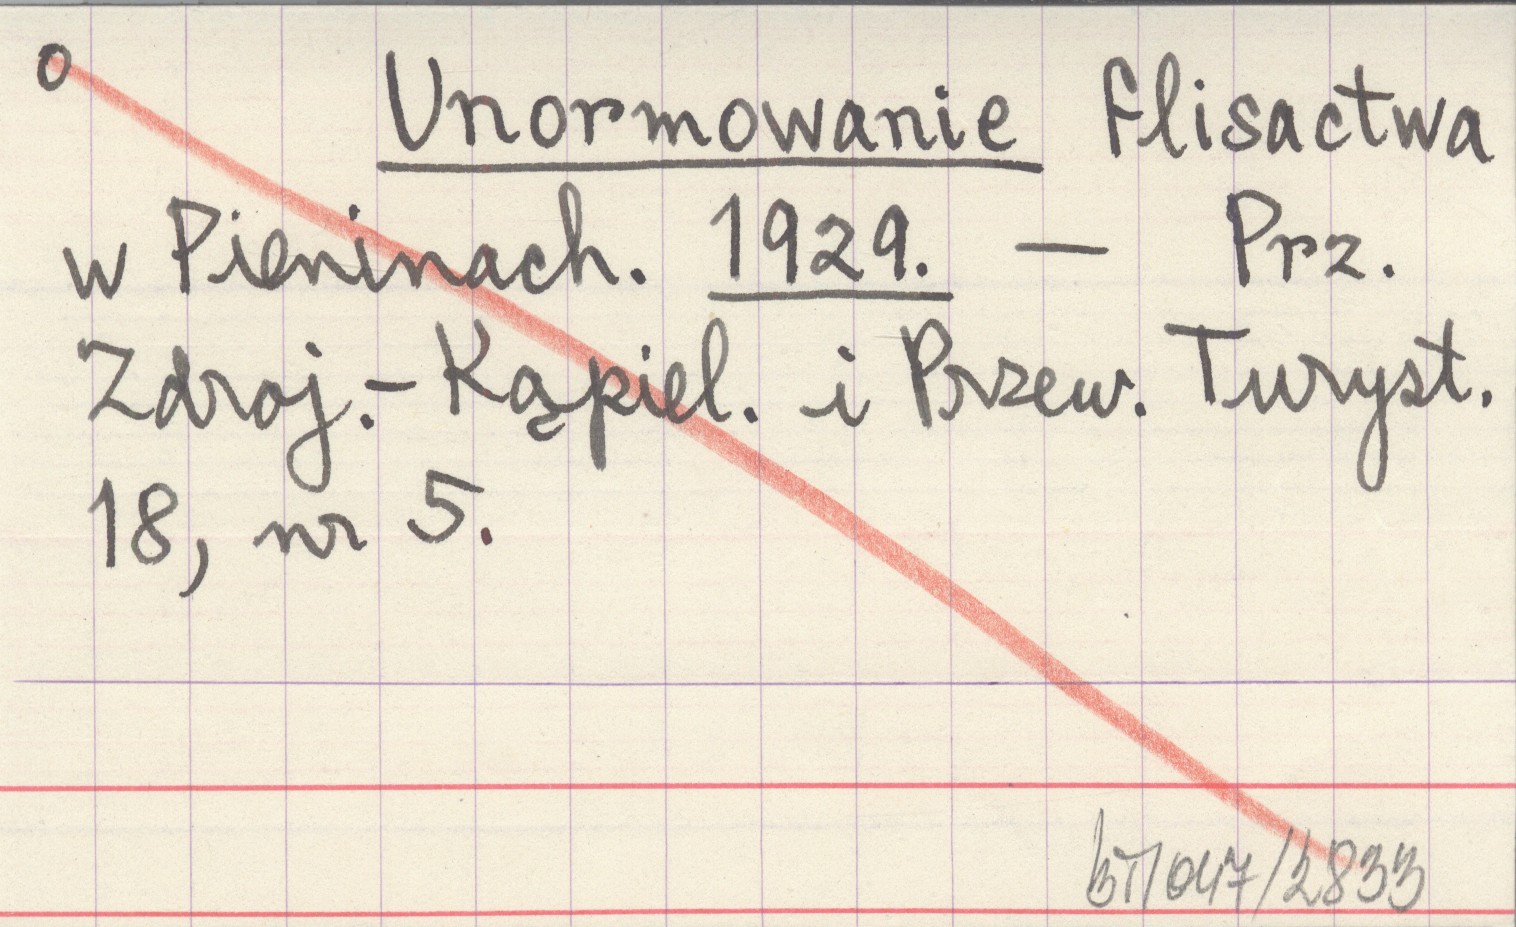 o Unormowanie flisactwa
w Pieninach. 1929. — Prz.
Zdroj.-Kąpiel. i Przew. Turyst.
18, nr 5.